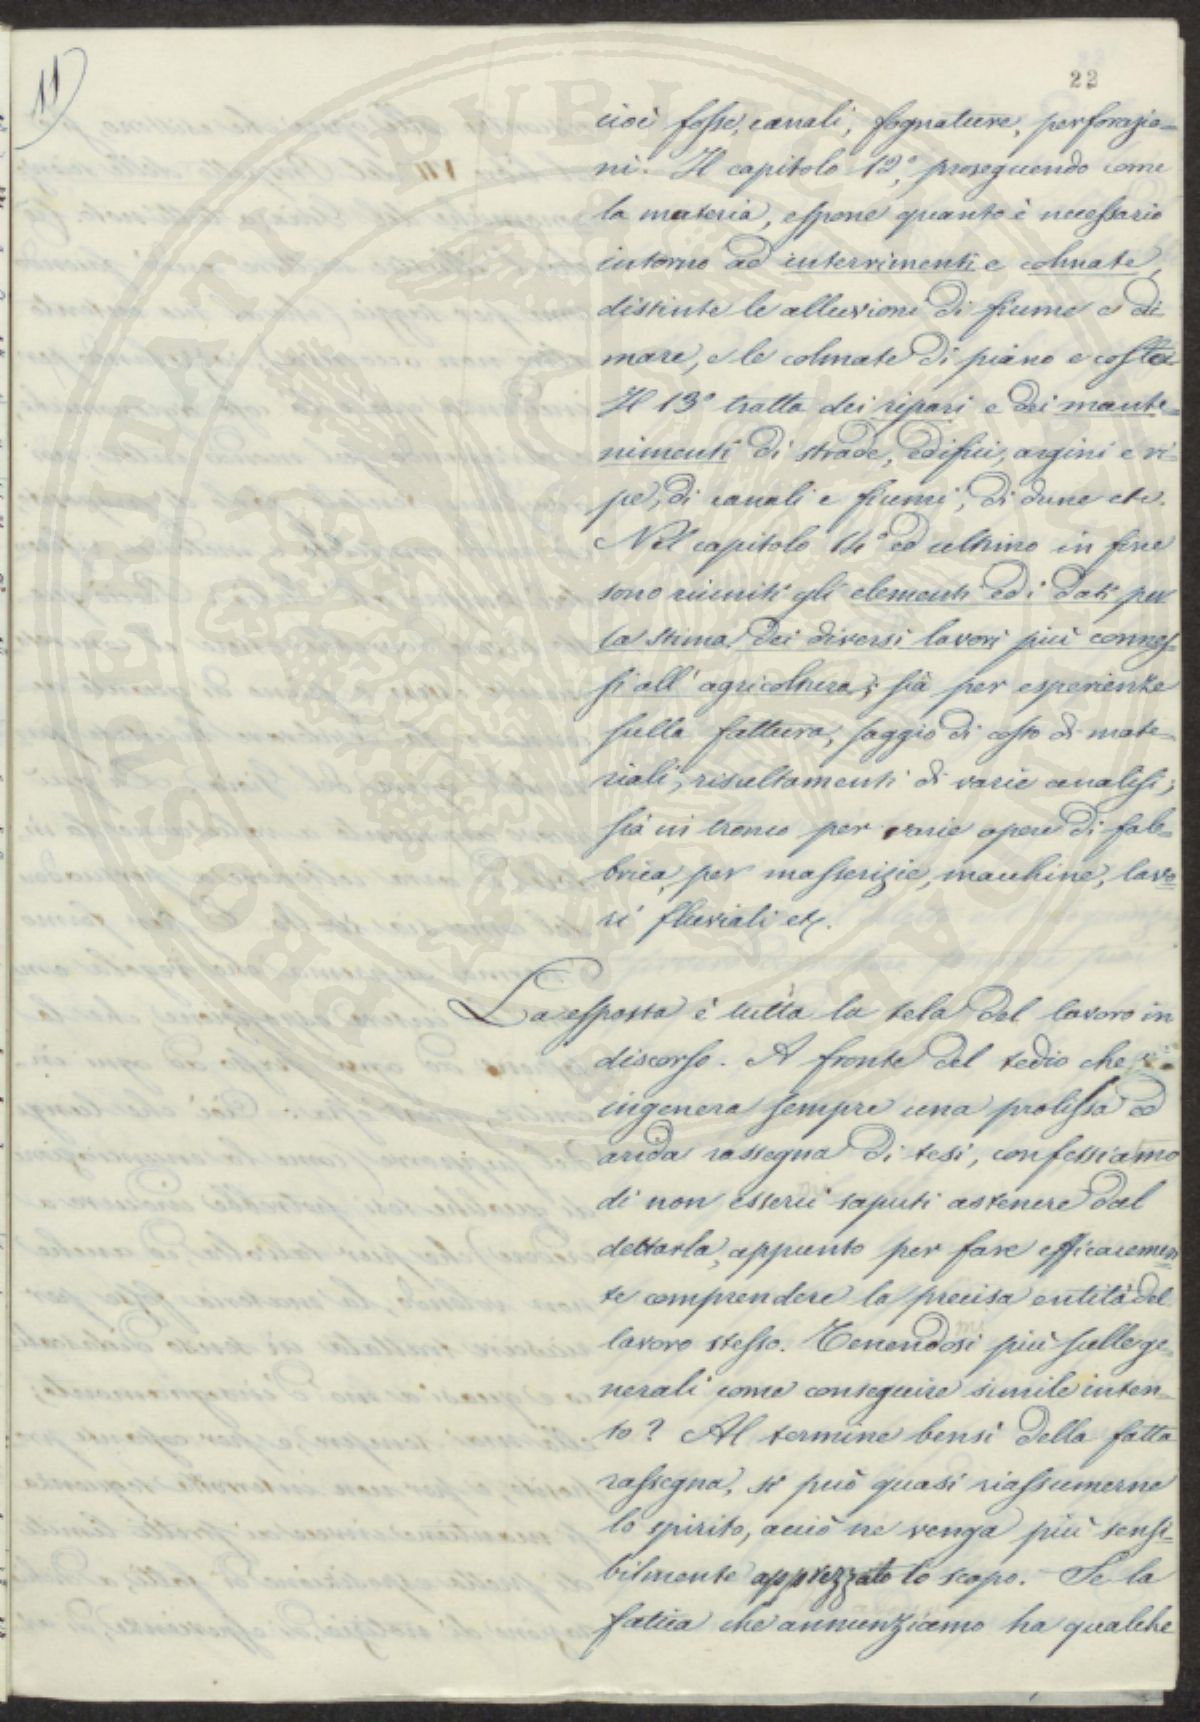 11)
22
cioè fosse, canali, fognature, perforazio=
ni. Il capitolo 12°, proseguendo come
la materia, espone quanto è necessario
intorno ad interrimenti e colmate,
distinte le alluvioni di fiume e di
mare, e le colmate di piano e costa.
Il 13° tratta dei ripari e dei mante=
nimenti di strade, edifici, argini e ri=
pe, di canali e fiumi, di dune etc.
Nel capitolo 14° ed ultimo in fine
sono riuniti gli elementi ed i dati per
la stima dei diversi lavori più connes=
si all'agricoltura; sia per esperienze
sulla fattura, saggio di costo di mate=
riali, risultamenti di varie analisi;
sia in tronco per varie opere di fab=
brica, per masserizie, macchine, lavo
ri fluviali etc.
La esposta è tutta la tela del lavoro in
discorso. A fronte del tedio che
ingenera sempre una prolissa ed
arida rassegna di tesi, confessiamo
di non esserci saputi astenere dal
dettarla, appunto per fare efficacemen
te comprendere la precisa entità del
lavoro stesso. Tenendosi più sulle ge=
nerali come conseguire simile inten=
to? Al termine bensì della fatta
rassegna, si può quasi riassumerne
lo spirito, acciò ne venga più sensi=
bilmente apprezzato lo scopo. Se la
fatica che annunziamo ha qualche
PROSPERITATI PVBLICAE